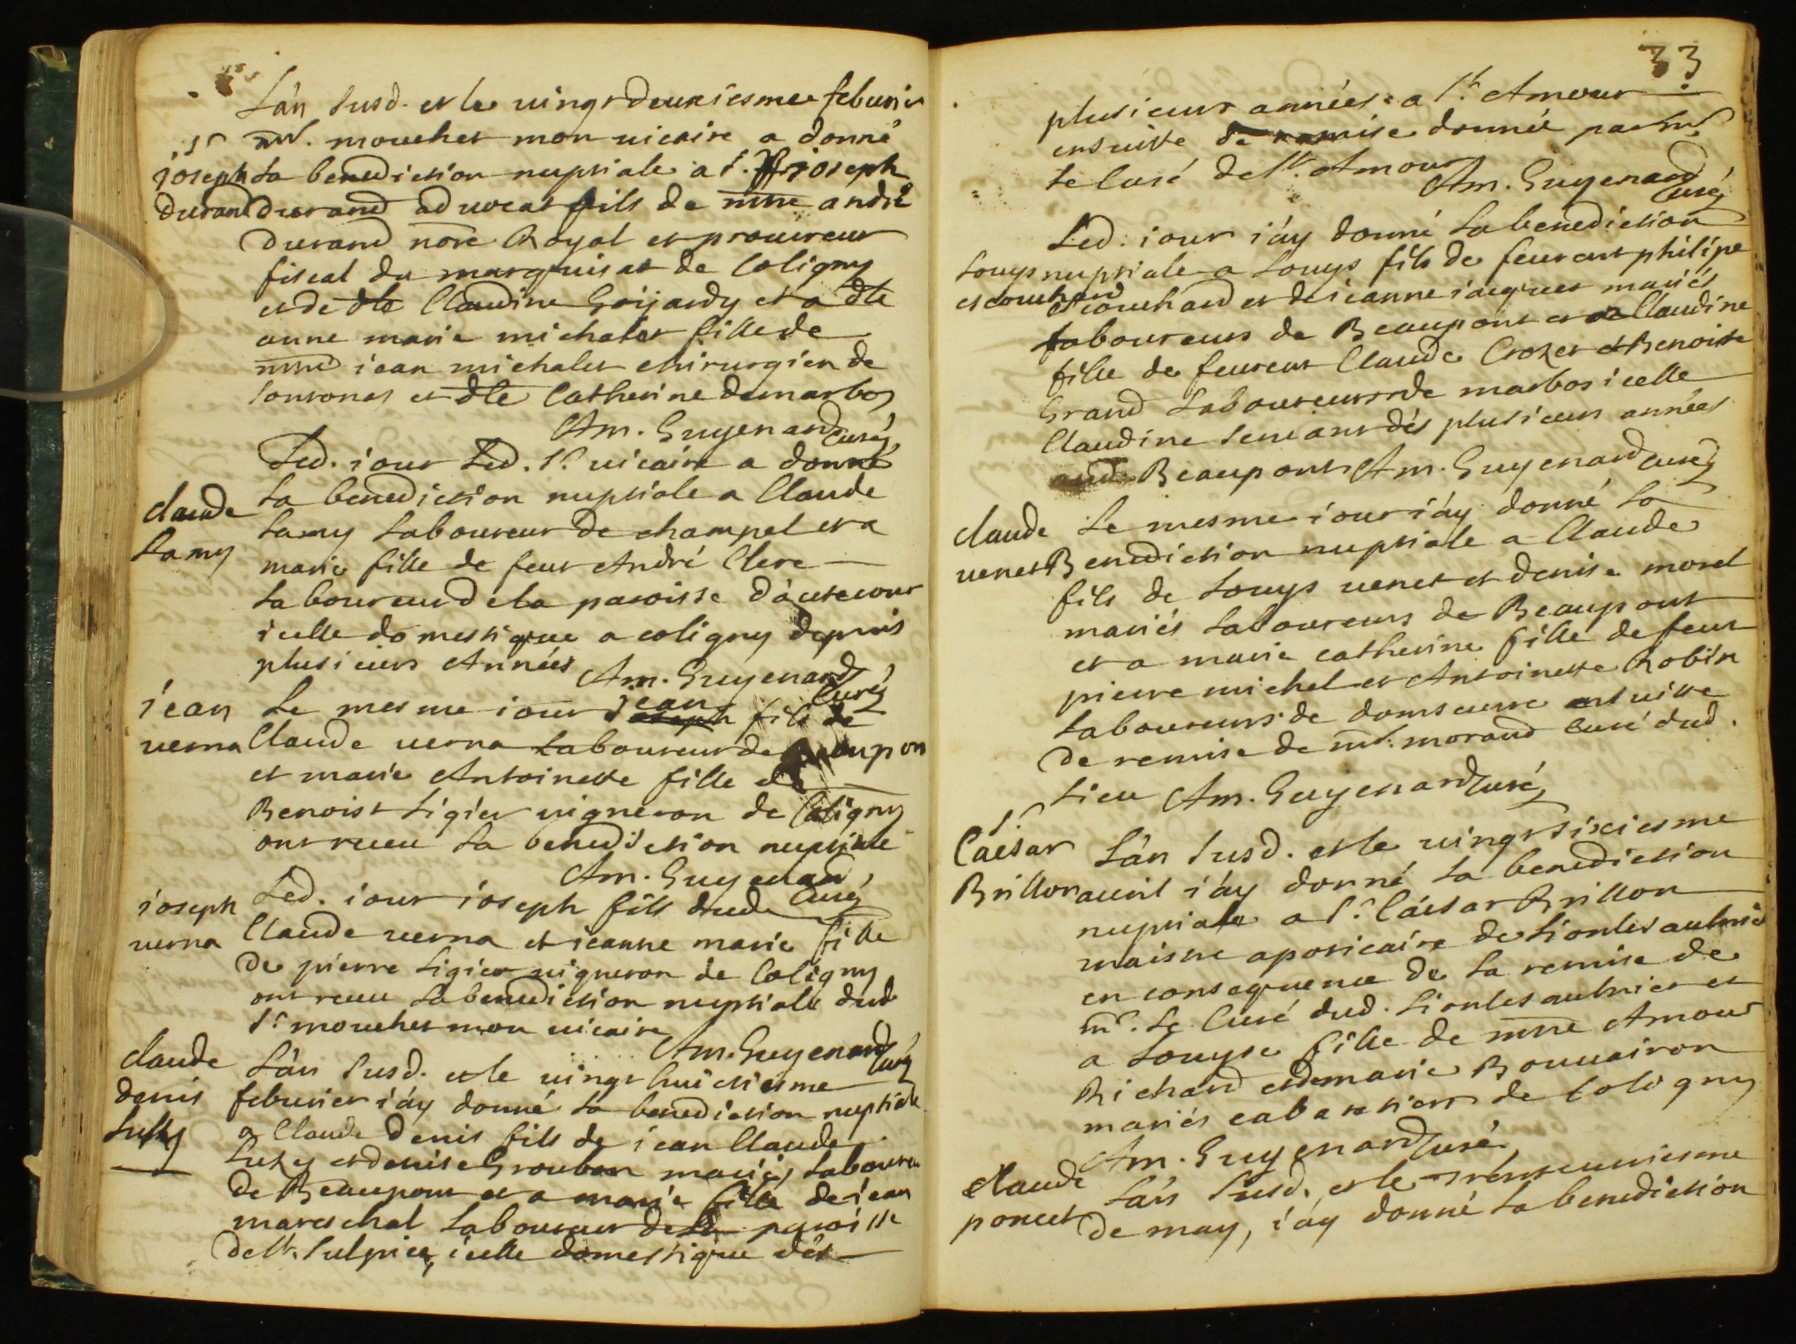 L'an susd. et le vingt deuxiesme febvrier
Sr mr. mouchet mon vicaire a donné
joseph la benediction nuptiale a Sr. joseph
durand durand advocat fils de mtre andré
durand nore Royal et procureur
fiscal du marquisat de Coligny
et de dlle Claudine Goijardy et a dlle
anne marie michalet fille de
mtre jean michalet chirurgien de
et dlle Catherine demarbos
Am. Guyenard Curé
Led. iour Led. Sr. vicaire a donné
la benediction nuptiale a Claude
claude
Lamy
Lamy Laboureur de champel et a
marie fille de feut André Clere
Laboureur de la paroisse d'autecour
icelle domestique a coligny depuis
plusieurs Années Am. Guyenard Curé
jean Le mesme iour jean fils de
verna Claude verna Laboureur de Beaupon
et marie Antoinette fille de
Benoist Ligier vigneron de Coligny
ont receu la benediction nuptiale
Am. Guyenard Curé
joseph Led. iour joseph fils dud.
verna Claude verna et jeanne marie fille
de pierre Ligier vigneron de Coligny
ont receu la benediction nuptiale dud
Sr mouchet mon vicaire
Am. Guyenard Curé
claude L'an susd. et le vingt huictiesme
denis febvrier i'ay donné la benediction nuptiale
a Claude denis fils de jean Claude
et denise Grouban mariés Laboureur
de Beaupont et a marie fille de jean
mareschal Laboureur de la paroisse
de St. Sulpice, icelle domestique dés
33
plusieurs années a St. Amour
ensuitte de remise donnée par mr
le Curé de St. Amour
Am. Guyenard Curé
Led. iour i'ay donné la benediction
Louys nuptiale a Louys fils de feurent philipe
escouchard escouchard et de jeanne jacquet mariés
laboureurs de Beaupont et a Claudine
fille de feurent Claude Crozet et Benoiste
Grand Laboureurs de marbos icelle
Claudine servant dés plusieurs années
aud. Beaupont Am. Guyenard Curé
claude Le mesme iour i'ay donné la
venet Benediction nuptiale a Claude
fils de Louys venet et denise morel
mariés Laboureurs de Beaupont
et a marie catherine fille de feut
pierre michel et Antoinette Robin
Laboureurs de domsure ensuitte
de remise de mr. morand Curé dud.
Lieu Am. Guyenard Curé
Sr.
Caesar L'an susd. et le vingt sixiesme
Brillon avril i'ay donné la benediction
nuptiale a Sr. Caesar Brillon
maistre apoticaire de Lionlesaulnier
en consequence de la remise de
mr. Le Curé dud. Lionlesaulnier et
a Louyse fille de mtre Amour
Richard et de marie Bouvairon
mariés cabaretiers de Coligny
Am. Guyenard Curé
claude L'an susd. et le trenteuniesme
poncet de may, i'ay donné la benediction